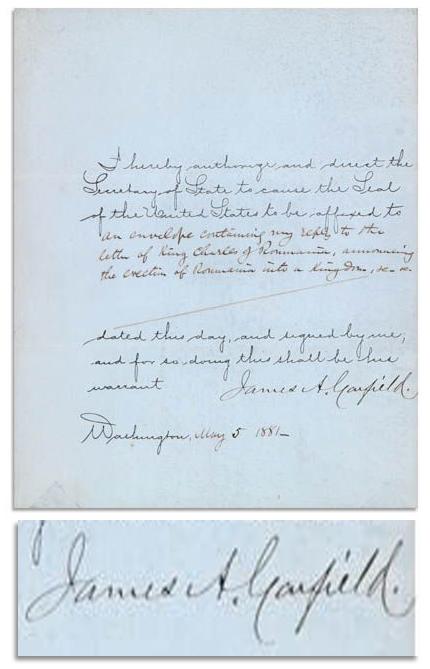 I hereby authorize and direct the
Secretary of State to cause the Seal
of the United States to be affixed to
an envelope containing my reply to the
letter of King Charles of Roumania, announcing
the erection of Roumania into a Kingdom, &c &c.
dated this day, and signed by me;
and for so doing this shall be his
warrant
James A. Garfield.
Washington, May 5 1881—
James A. Garfield.